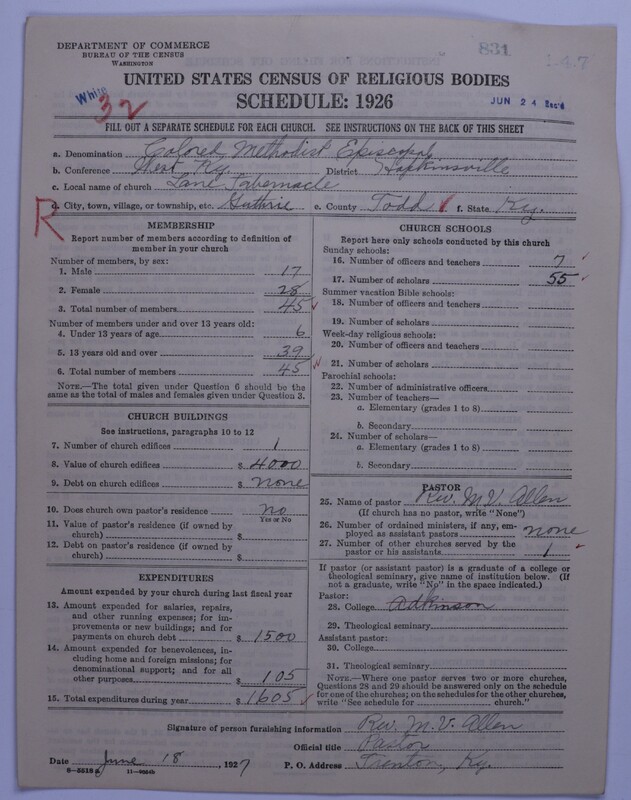 DEPARTMENT OF COMMERCE
BUREAU OF THE CENSUS
WASHINGTON
831
1.4.7
UNITED STATES CENSUS OF RELIGIOUS BODIES
White
32
SCHEDULE: 1926
JUN 24 Rec'd
FILL OUT A SEPARATE SCHEDULE FOR EACH CHURCH. SEE INSTRUCTIONS ON THE BACK OF THIS SHEET
a. Denomination Colored Methodist Episcopal
b. Conference West Ky. District Hopkinsville
c. Local name of church Lane Tabernacle
R
d. City, town, village, or township, etc. Guthrie e. County Todd f. State Ky.
MEMBERSHIP
Report number of members according to definition of
member in your church
Number of members, by sex:
1. Male 17
2. Female 28
3. Total number of members 45
Number of members under and over 13 years old:
4. Under 13 years of age 6
5. 13 years old and over 39
6. Total number of members 45
NOTE.—The total given under Question 6 should be
same as the total of males and females given under Question 3.
CHURCH BUILDINGS
See instructions, paragraphs 10 to 12
7. Number of church edifices 1
8. Value of church edifices $ 4000
9. Debt on church edifices $ none
10. Does church own pastor's residence? no
Yes or No
11. Value of pastor's residence (if owned by
church) $
12. Debt on pastor's residence (if owned by
church) $
EXPENDITURES
Amount expended by your church during last fiscal year
13. Amount expended for salaries, repairs,
and other running expenses; for im-
provements or new buildings; and for
payments on church debt $ 1500
14. Amount expended for benevolences, in-
cluding home and foreign missions; for
denominational support; and for all
other purposes $ 105
15. Total expenditures during year $ 1605
CHURCH SCHOOLS
Report here only schools conducted by this church
Sunday schools:
16. Number of officers and teachers 7
17. Number of scholars 55
Summer vacation Bible schools:
18. Number of officers and teachers
19. Number of scholars
Week-day religious schools:
20. Number of officers and teachers
21. Number of scholars
Parochial schools:
22. Number of administrative officers
23. Number of teachers—
a. Elementary (grades 1 to 8)
b. Secondary
24. Number of scholars—
a. Elementary (grades 1 to 8)
b. Secondary
PASTOR
25. Name of pastor Rev. M. V. Allen
(If church has no pastor, write "None")
26. Number of ordained ministers, if any, em-
ployed as assistant pastors none
27. Number of other churches served by the
pastor or his assistants 1
If pastor (or assistant pastor) is a graduate of a college or
theological seminary, give name of institution below. (If
not a graduate, write "No" in the space indicated.)
Pastor:
28. College Adkinson
29. Theological seminary
Assistant pastor:
30. College
31. Theological seminary
NOTE.—Where one pastor serves two or more churches,
Questions 28 and 29 should be answered only on the schedule
for one of the churches; on the schedules for the other churches,
write "See schedule for church."
Signature of person furnishing information Rev. M. V. Allen
Official title Pastor
Date June 18, 1927 P. O. Address Trenton, Ky.